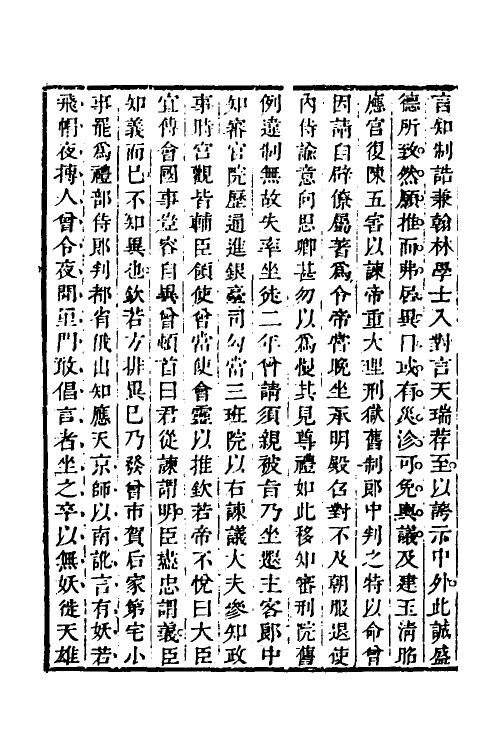 言知制誥兼翰林學士入對言天瑞荐至以誇示中外此誠盛
德所致然願推而弗居異日或有災沴可免輿議及建玉清昭
應宮復陳五害以諫帝重大理刑獄舊制郎中判之特以命曾
因請自辟僚屬著爲令帝嘗晚坐承明殿召對不及朝服退使
內侍諭意向思卿甚勿以爲慢其見尊禮如此移知審刑院舊
例違制無故失率坐徒二年曾請須親被旨乃坐遷主客郎中
知審官院歷通進銀臺司勾當三班院以右諫議大夫參知政
事時宮觀皆輔臣領使曾當使會靈以推欽若帝不悅曰大臣
宜傅會國事豈容自異曾頓首曰君從諫謂明臣盡忠謂義臣
知義而已不知異也欽若方排異已乃發曾市賀后家第宅小
事罷爲禮部侍郎判都省俄出知應天京師以南訛言有妖若
飛帽夜搏人曾令夜開里門敢倡言者坐之卒以無妖徙天雄